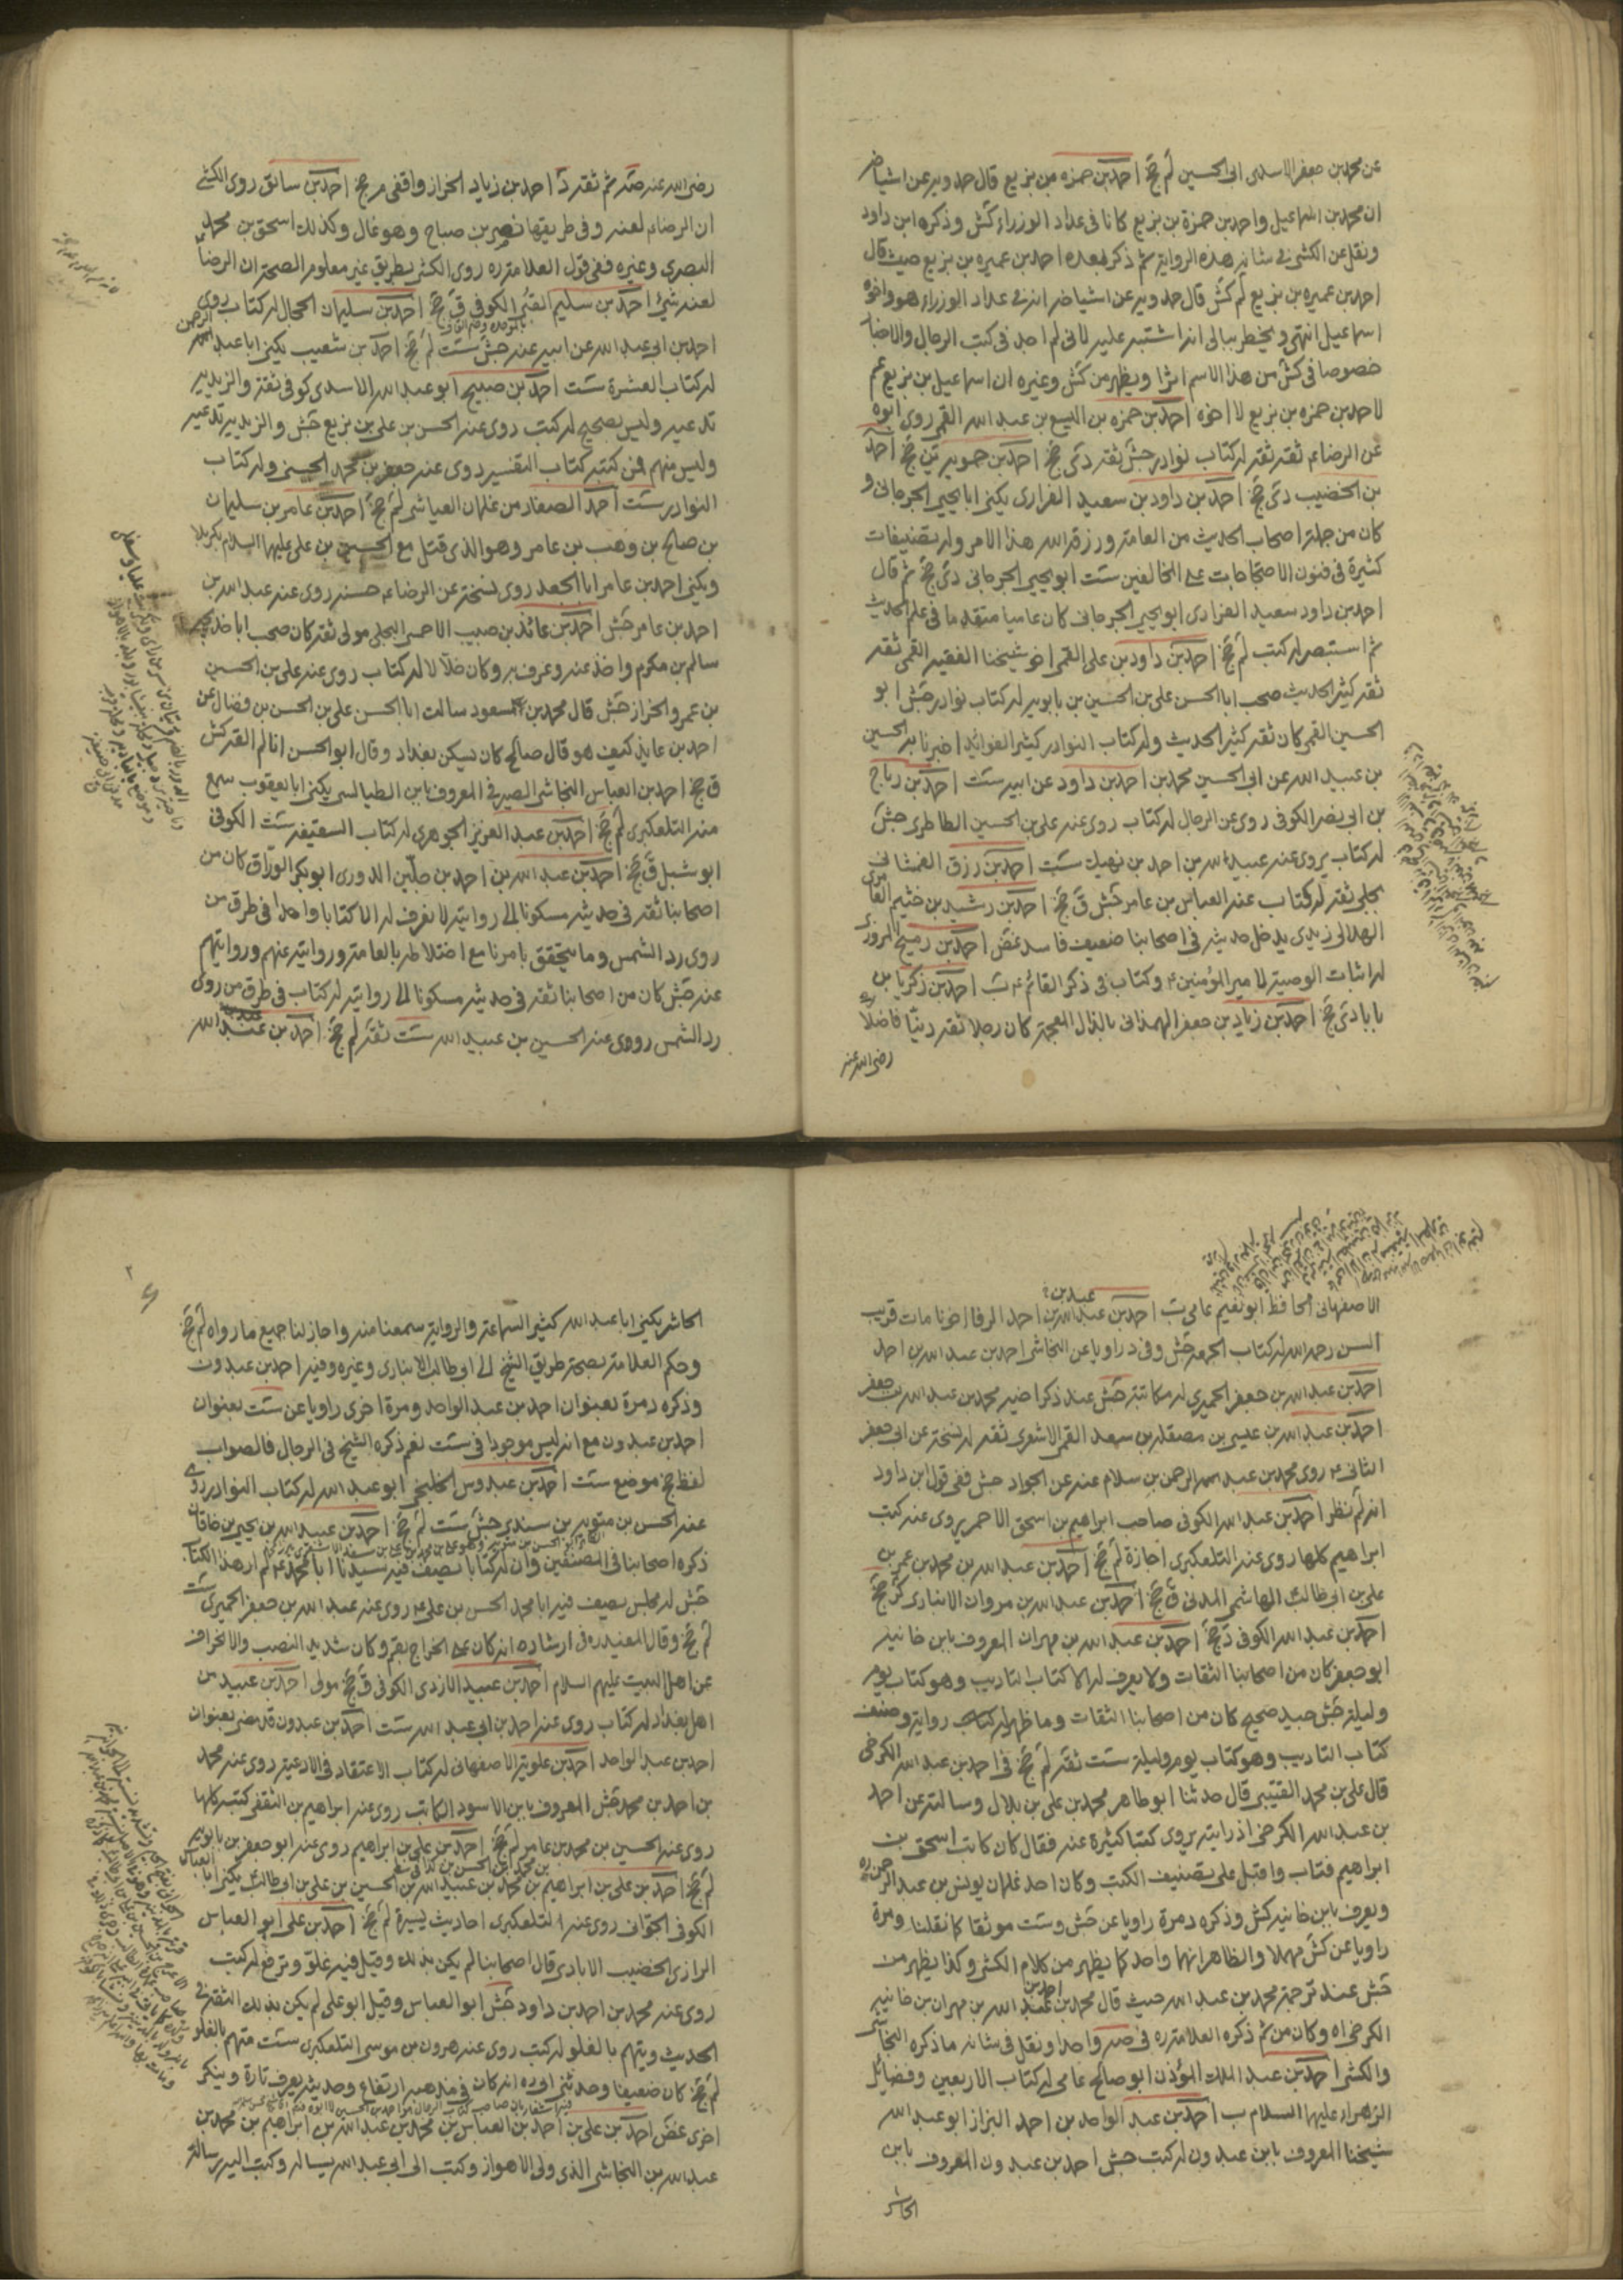 عن محمد بن جعفر الاسدى ابى الحسين لم جخ احمد بن حمزه بن بزيع قال حمدويه عن اشياخه
ان محمد بن اسماعيل واحمد بن حمزة بن بزيع كانا فى عداد الوزراء كش وذكره ابن داود
ونقل عن الكشى فى شانه هذه الرواية ثم ذكر بعده احمد بن عميره بن بزيع حيث قال
احمد بن عميره بن بزيع لم كش قال حمدويه عن اشياخه انه فى عداد الوزراء هو واخوه
اسماعيل انتهى ويخطر ببالى انه اشتبه عليه لانى لم اجد فى كتب الرجال والاخبار
خصوصا فى كش من هذا الاسم اثرا ويظهر من كش وغيره ان اسماعيل بن بزيع عم
لاحمد بن حمزه بن بزيع لا اخوه احمد بن حمزه بن اليسع بن عبد الله القمى روى ابوه
عن الرضاء ثقه ثقه له كتاب نوادر جش ثقه دى جخ احمد بن حمويه ين جخ احمد
بن الخضيب دى جخ احمد بن داود بن سعيد الفزارى يكنى ابا يحيى الجرجانى و
كان من جلة اصحاب الحديث من العامة ورزقه الله هذا الامر وله تصنيفات
كثيرة فى فنون الاحتجاجات على المخالفين ست ابو يحيى الجرجانى دى جخ ثم قال
احمد بن داود سعيد الفزارى ابو يحيى الجرجانى كان عاميا متقدما فى علم الحديث
ثم استبصر له كتب لم جخ احمد بن داود بن على القمى اخو شيخنا الفقيه القمى ثقه
ثقه كثير الحديث صحب ابا الحسن على بن الحسين بن بابويه له كتاب نوادر جش ابو
الحسين القمى كان ثقه كثير الحديث وله كتاب النوادر كثير الفوائد اخبرنا به الحسين
بن عبيد الله عن ابى الحسين محمد بن احمد بن داود عن ابيه ست احمد بن رباح
بن ابى نصر الكوفى روى عن الرجال له كتاب روى عنه على بن الحسين الطاطرى جش
له كتاب يروى عنه عبيد الله بن احمد بن نهيك ست احمد بن رزق الغمشانى
بجلى ثقه له كتاب عنه العباس بن عامر جش ق جخ احمد بن رشيد بن خثيم العامرى
الهلالى زيدى يدخل حديثه فى اصحابنا ضعيف فاسد غض احمد بن رميح المروزى
له اثبات الوصية لامير المؤمنين ع وكتاب فى ذكر القائم ع ب احمد بن زكريا بن
بابا دى جخ احمد بن زياد بن جعفر الهمذانى بالذال المعجمة كان رجلا ثقه دينا فاضلا
رضى الله عنه
رضى الله عنه صه ثم ثقه د احمد بن زياد الخزاز واقفى م جخ احمد بن سابق روى الكشى
ان الرضاء لعنه وفى طريقها نصر بن صباح وهو غال وكذلك اسحق بن محمد
البصرى وغيره ففى قول العلامة ره روى الكشى بطريق غير معلوم الصحة ان الرضا
لعنه شىء احمد بن سليم القبى الكوفى ق جخ احمد بن سليمان الحجال له كتاب روى
احمد بن ابى عبد الله عن ابيه عنه جش ست لم جخ احمد بن شعيب يكنى ابا عبد الرحمن
له كتاب العشرة ست احمد بن صبيح ابو عبد الله الاسدى كوفى ثقة والزيدية
تدعيه وليس بصحيح له كتب روى عنه الحسن بن على بن بزيع جش والزيدية تدعيه
وليس منهم فمن كتبه كتاب التفسير روى عنه جعفر بن محمد الحسينى وله كتاب
النوادر ست احمد الصفار من غلمان العياشى لم جخ احمد بن عامر بن سليمان
بن صالح بن وهب بن عامر وهو الذى قتل مع الحسين بن على عليهما السلام بكربلا
ويكنى احمد بن عامر ابا الجعد روى نسخة عن الرضاء حسنه روى عنه عبد الله بن
احمد بن عامر جش احمد بن عائذ بن حبيب الاحمسى البجلى مولى ثقه كان صحب ابا خديجه
سالم بن مكرم واخذ عنه وعرف به وكان خلالا له كتاب روى عنه على بن الحسين
بن عمرو الخزاز جش قال محمد بن مسعود سالت ابا الحسن على بن الحسن بن فضال عن
احمد بن عايذ كيف هو قال صالح كان يسكن بغداد وقال ابو الحسن انا لم القه كش
ق جخ احمد بن العباس النجاشى الصيرفى المعروف بابن الطيالسى يكنى ابا يعقوب سمع
منه التلعكبرى لم جخ احمد بن عبد العزيز الجوهرى له كتاب السقيفه ست الكوفى
ابو شبل ق جخ احمد بن عبد الله بن احمد بن جلين الدورى ابو بكر الوراق كان من
اصحابنا ثقه فى حديثه مسكونا الى روايته لا نعرف له الا كتابا واحدا فى طرق من
روى رد الشمس وما يتحقق بامرنا مع اختلاطه بالعامة وروايته عنهم وروايتهم
عنه جش كان من اصحابنا ثقه فى حديثه مسكونا الى روايته له كتاب فى طرق من روى
رد الشمس روى عنه الحسين بن عبيد الله ست ثقه لم جخ احمد بن عبد الله
الاصفهانى الحافظ ابو نعيم عامى ب احمد بن عبد الله بن احمد الرفا اخونا مات قريب
السن رحمه الله له كتاب الجمعه جش وفى د راويا عن النجاشى احمد بن عبد الله بن احمد
احمد بن عبد الله بن جعفر الحميرى له مكاتبة جش عند ذكر اخيه محمد بن عبد الله بن جعفر
احمد بن عبد الله بن عيسى بن مصقلة بن سعد القمى الاشعرى ثقه له نسخة عن ابى جعفر
الثانى ع روى محمد بن عبد الرحمن بن سلام عنه عن الجواد جش ففى قول ابن داود
انه لم نظر احمد بن عبد الله الكوفى صاحب ابراهيم بن اسحق الاحمر يروى عنه كتب
ابراهيم كلها روى عنه التلعكبرى اجازة لم جخ احمد بن عبد الله بن محمد بن عمر بن
على بن ابى طالب الهاشمى المدنى ق جخ احمد بن عبد الله بن مروان الانبارى كر جخ
احمد بن عبد الله الكوفى د جخ احمد بن عبد الله بن مهران المعروف بابن خانبه
ابو جعفر كان من اصحابنا الثقات ولا يعرف له الا كتاب التاديب وهو كتاب يوم
وليلة جش جيد صحيح كان من اصحابنا الثقات وما ظهر له كتاب رواية وصنف
كتاب التاديب وهو كتاب يوم وليلة ست ثقه لم جخ فى احمد بن عبد الله الكرخى
قال على بن محمد القتيبى قال حدثنا ابو طاهر محمد بن على بن بلال وسالته عن احمد
بن عبد الله الكرخى اذ رايته يروى كتبا كثيرة عنه فقال كان كاتب اسحق بن
ابراهيم فتاب واقبل على تصنيف الكتب وكان احد غلمان يونس بن عبد الرحمن ره
ويعرف بابن خانبه كش وذكره د مرة راويا عن جش وست موثقا كما نقلنا ومرة
راويا عن كش مهملا والظاهر انهما واحد كما يظهر من كلام الكشى وكذا يظهر من
جش عند ترجمة محمد بن عبد الله حيث قال محمد بن احمد بن عبد الله بن مهران بن خانبه
الكرخى اه وكان من ثم ذكره العلامة ره فى صه واحدا ونقل فى شانه ما ذكره النجاشى
والكشى احمد بن عبد الملك المؤذن ابو صالح عامى له كتاب الاربعين وفضائل
الزهراء عليها السلام ب احمد بن عبد الواحد بن احمد البزاز ابو عبد الله
شيخنا المعروف بابن عبدون له كتب جش احمد بن عبدون المعروف بابن
الحاشر
الحاشر يكنى ابا عبد الله كثير السماعة والرواية سمعنا منه واجاز لنا جميع ما رواه لم جخ
وحكم العلامة بصحة طريق الشيخ الى ابى طالب الانبارى وغيره وفيه احمد بن عبدون
وذكره د مرة بعنوان احمد بن عبد الواحد ومرة اخرى راويا عن ست بعنوان
احمد بن عبدون مع انه ليس موجودا فى ست نعم ذكره الشيخ فى الرجال فالصواب
لفظ جخ موضع ست احمد بن عبدوس الخلنجى ابو عبد الله له كتاب النوادر روى
عنه الحسن بن متويه بن سندى جش ست لم جخ احمد بن عبيد الله بن يحيى بن خاقان
ذكره اصحابنا فى المصنفين وان له كتابا يصف فيه سيدنا ابا محمد ع لم ار هذا الكتاب
جش له مجلس يصف فيه ابا محمد الحسن بن على ع روى عنه عبد الله بن جعفر الحميرى ست
لم جخ وقال المفيد ره فى ارشاده انه كان على الخراج بقم وكان شديد النصب والانحراف
عن اهل البيت عليهم السلام احمد بن عبيد الازدى الكوفى ق جخ مولى احمد بن عبيد من
اهل بغداد له كتاب روى عنه احمد بن ابى عبد الله ست احمد بن عبدون قد مضى بعنوان
احمد بن عبد الواحد احمد بن علويه الاصفهانى له كتاب الاعتقاد فى الادعية روى عنه محمد
بن احمد بن محمد جش المعروف بابن الاسود الكاتب روى عنه ابراهيم بن الثقفى كتبه كلها
روى عنه الحسين بن محمد بن عامر لم جخ احمد بن على بن ابراهيم روى عنه ابو جعفر بن بابويه
لم جخ احمد بن على بن ابراهيم بن محمد بن عبيد الله بن الحسين بن على بن ابى طالب يكنى ابا العباس
الكوفى الجوانى روى عنه التلعكبرى احاديث يسيرة لم جخ احمد بن على ابو العباس
الرازى الخضيب الايادى قال اصحابنا لم يكن بذلك وقيل فيه غلو وترفع له كتب
روى عنه محمد بن احمد بن داود جش ابو العباس وقيل ابو على لم يكن بذلك الثقة فى
الحديث ويتهم بالغلو له كتب روى عنه هرون بن موسى التلعكبرى ست متهم بالغلو
لم جخ كان ضعيفا وحدثنى ابى ره انه كان فى مذهبه ارتفاع وحديثه يعرف تارة وينكر
اخرى غض احمد بن على بن احمد بن العباس بن محمد بن عبد الله بن ابراهيم بن محمد بن
عبد الله بن النجاشى الذى ولى الاهواز وكتب الى ابى عبد الله يساله وكتب اليه رسالة